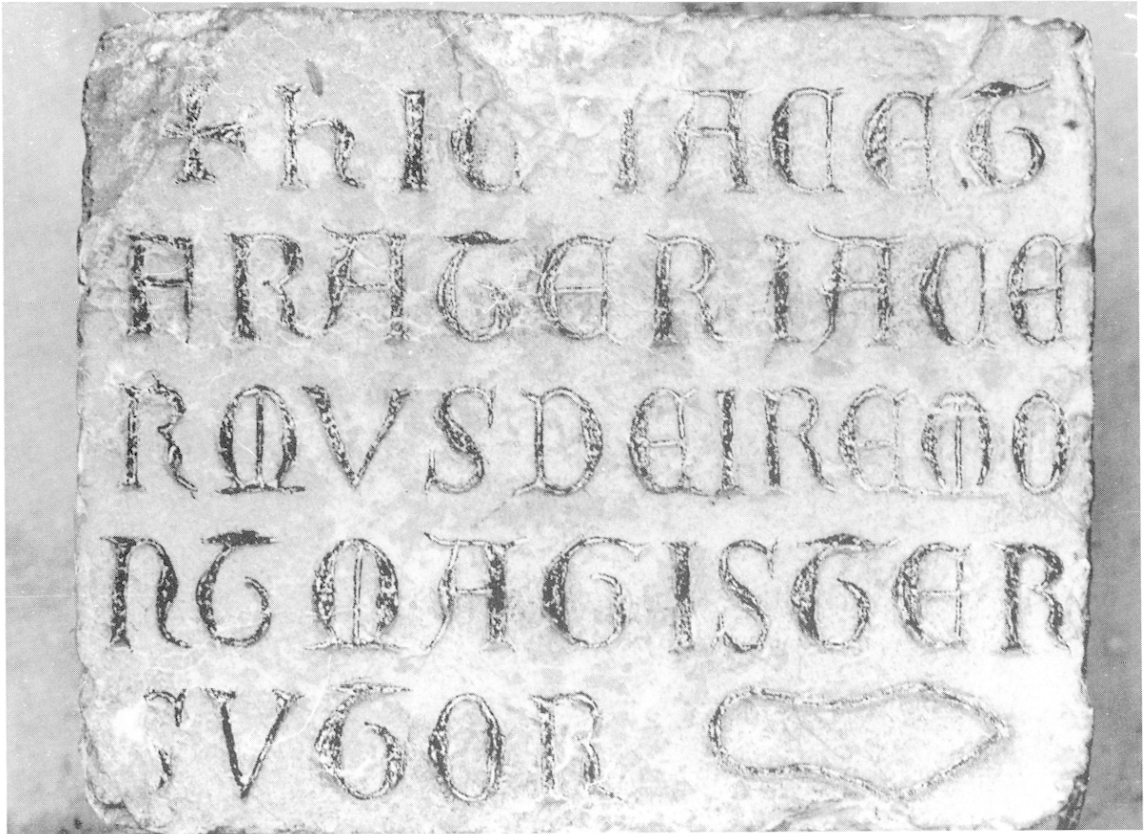 + hIC IACET
FRATER IACE
RMVS DE IREMO
NT MAGISTER
SVTOR